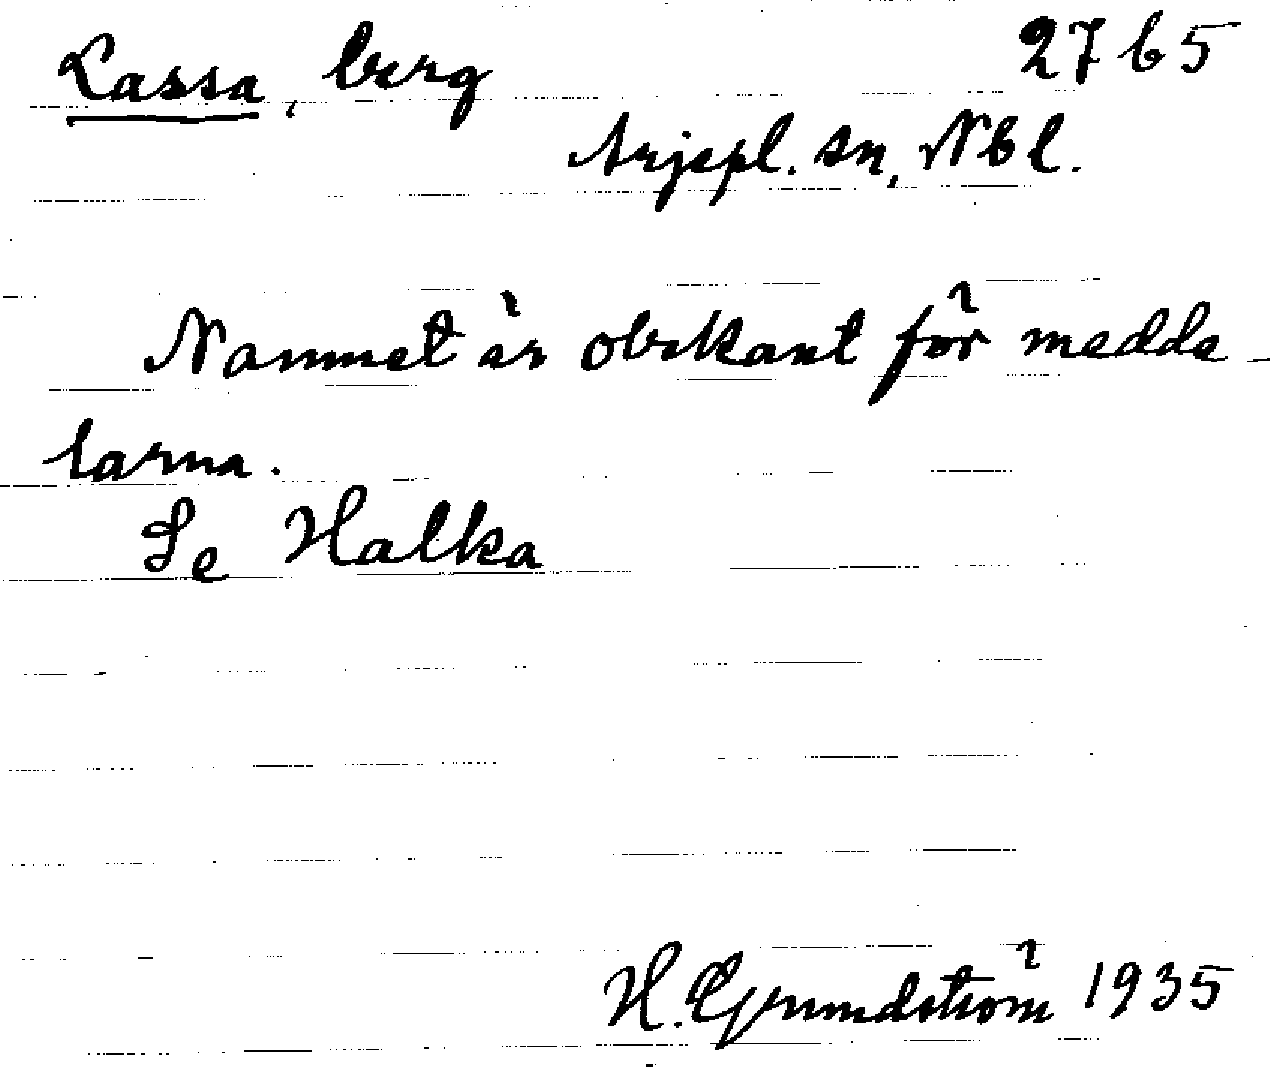 Lassa, berg 2765
Arjepl. sn, Nbl.
Namnet är obekant för medde-
larna.
Se Halka
H. Grundström 1935